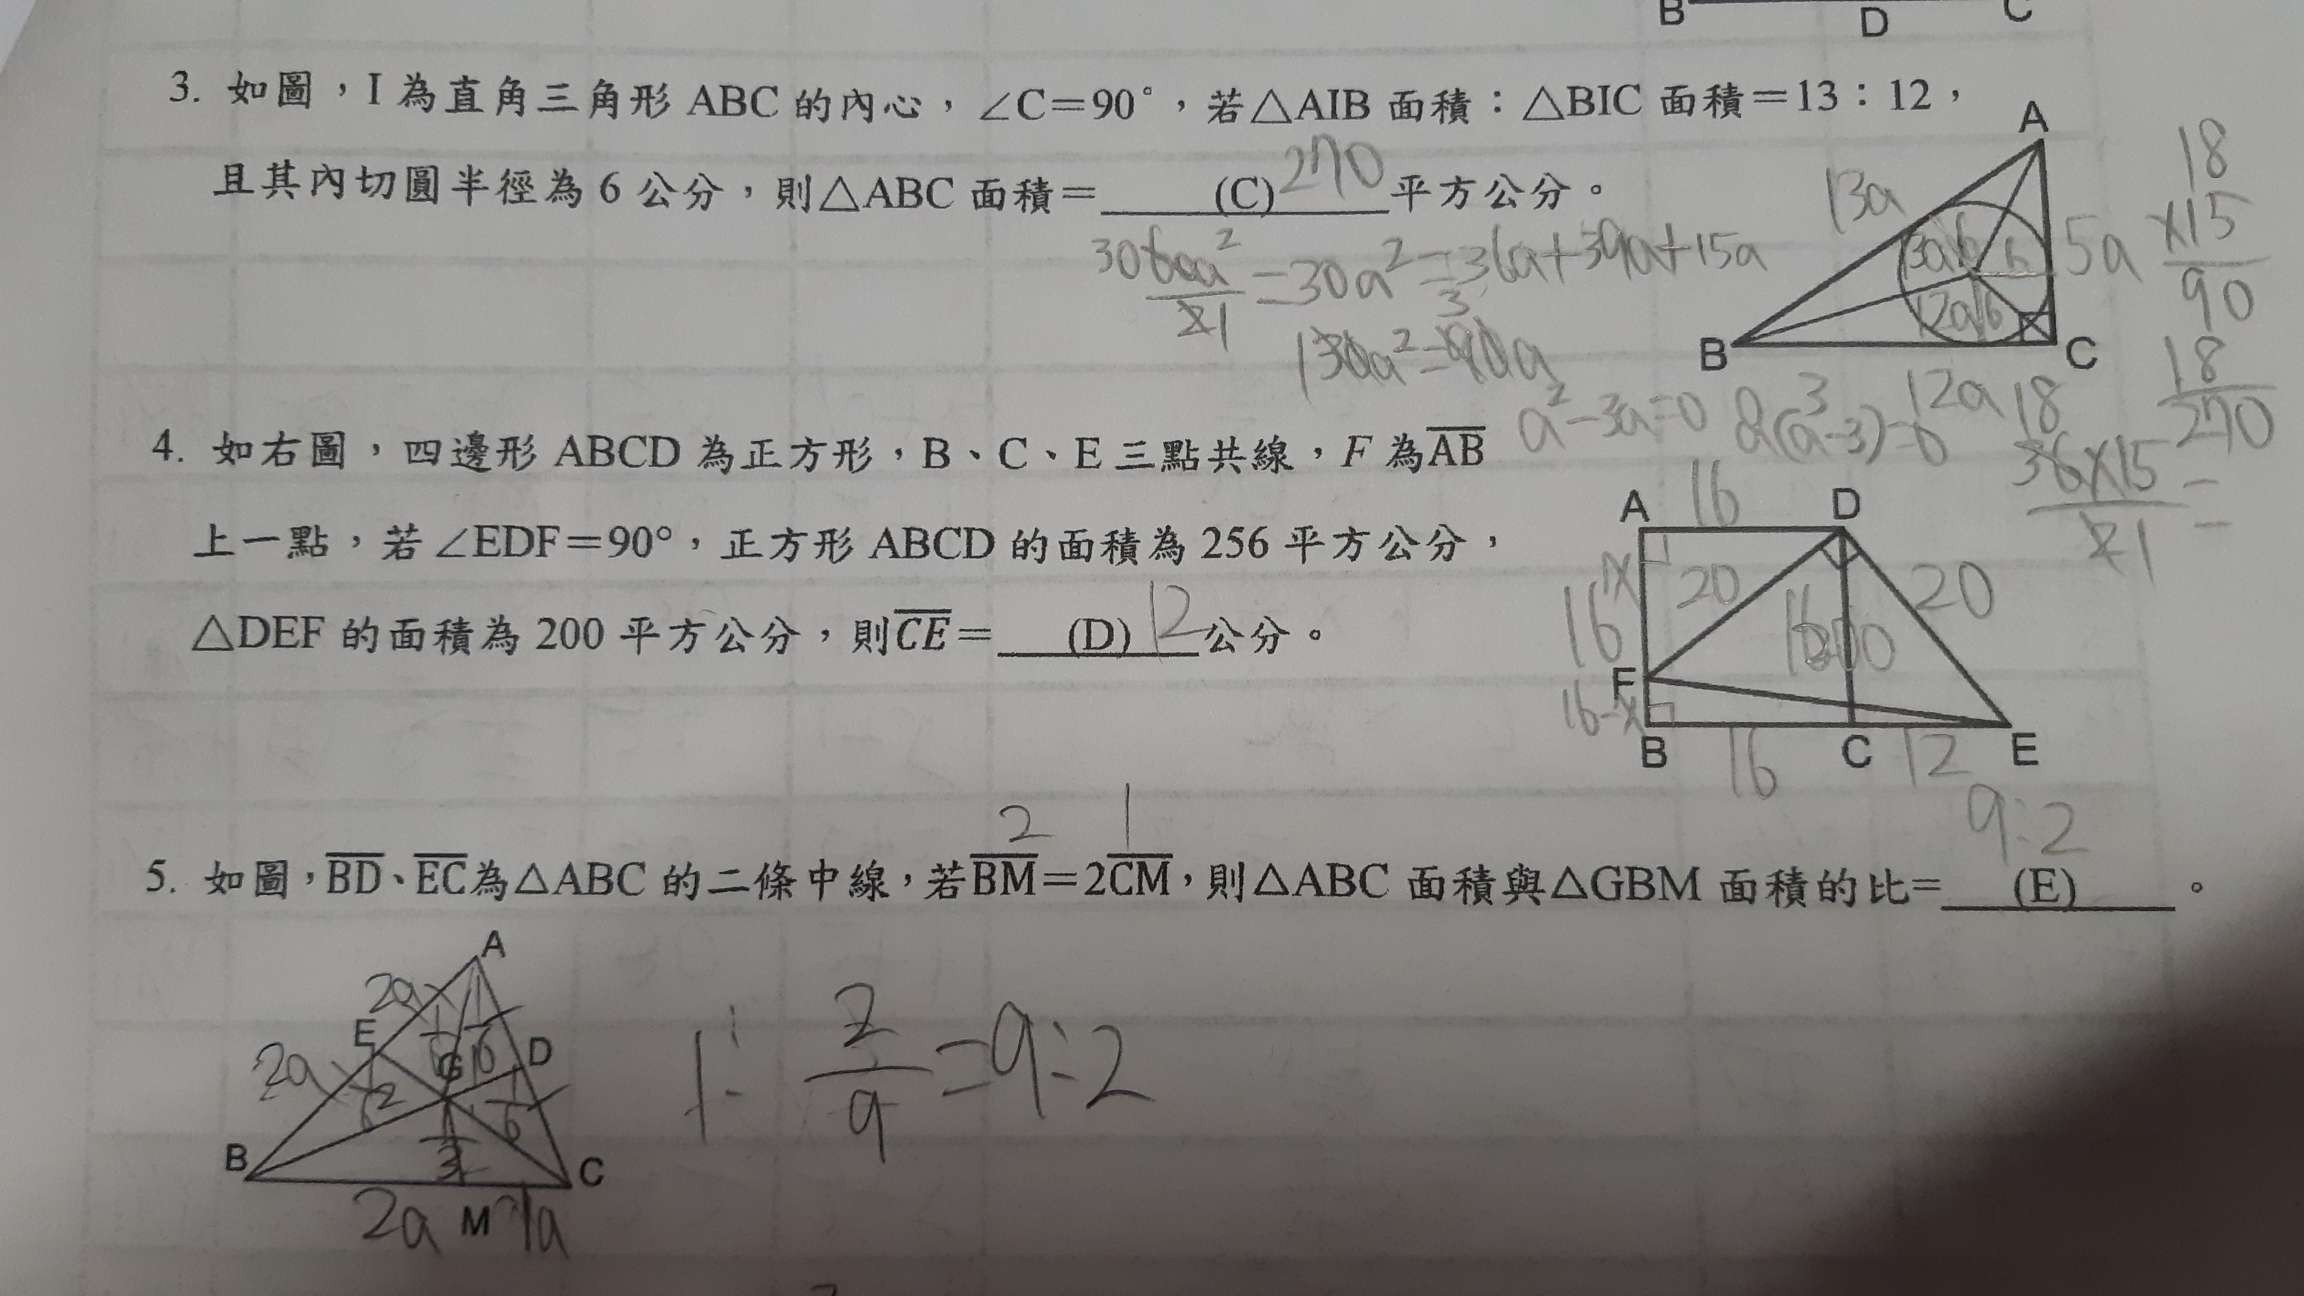 B D C
3. 如圖，I 為直角三角形 ABC 的內心，∠C＝90°，若△AIB 面積：△BIC 面積＝13：12，
且其內切圓半徑為 6 公分，則△ABC 面積＝ (C) 270 平方公分。
A
13a
5a
B
C
12a
18
×15
90
18
270
=30a²=36a+39a+15a
a²-3a=0
4. 如右圖，四邊形 ABCD 為正方形，B、C、E 三點共線，F 為AB
上一點，若∠EDF＝90°，正方形 ABCD 的面積為 256 平方公分，
△DEF 的面積為 200 平方公分，則CE＝ (D) 12 公分。
36×15
16
A D
x
16
20
16
200
20
F
16-x
B C E
16 12
2 1
9:2
5. 如圖，BD、EC為△ABC 的二條中線，若BM＝2CM，則△ABC 面積與△GBM 面積的比＝ (E) 。
A
2a
E
G
D
2a
1/6
1/3
B
C
2a M 1a
1:2/9=9:2